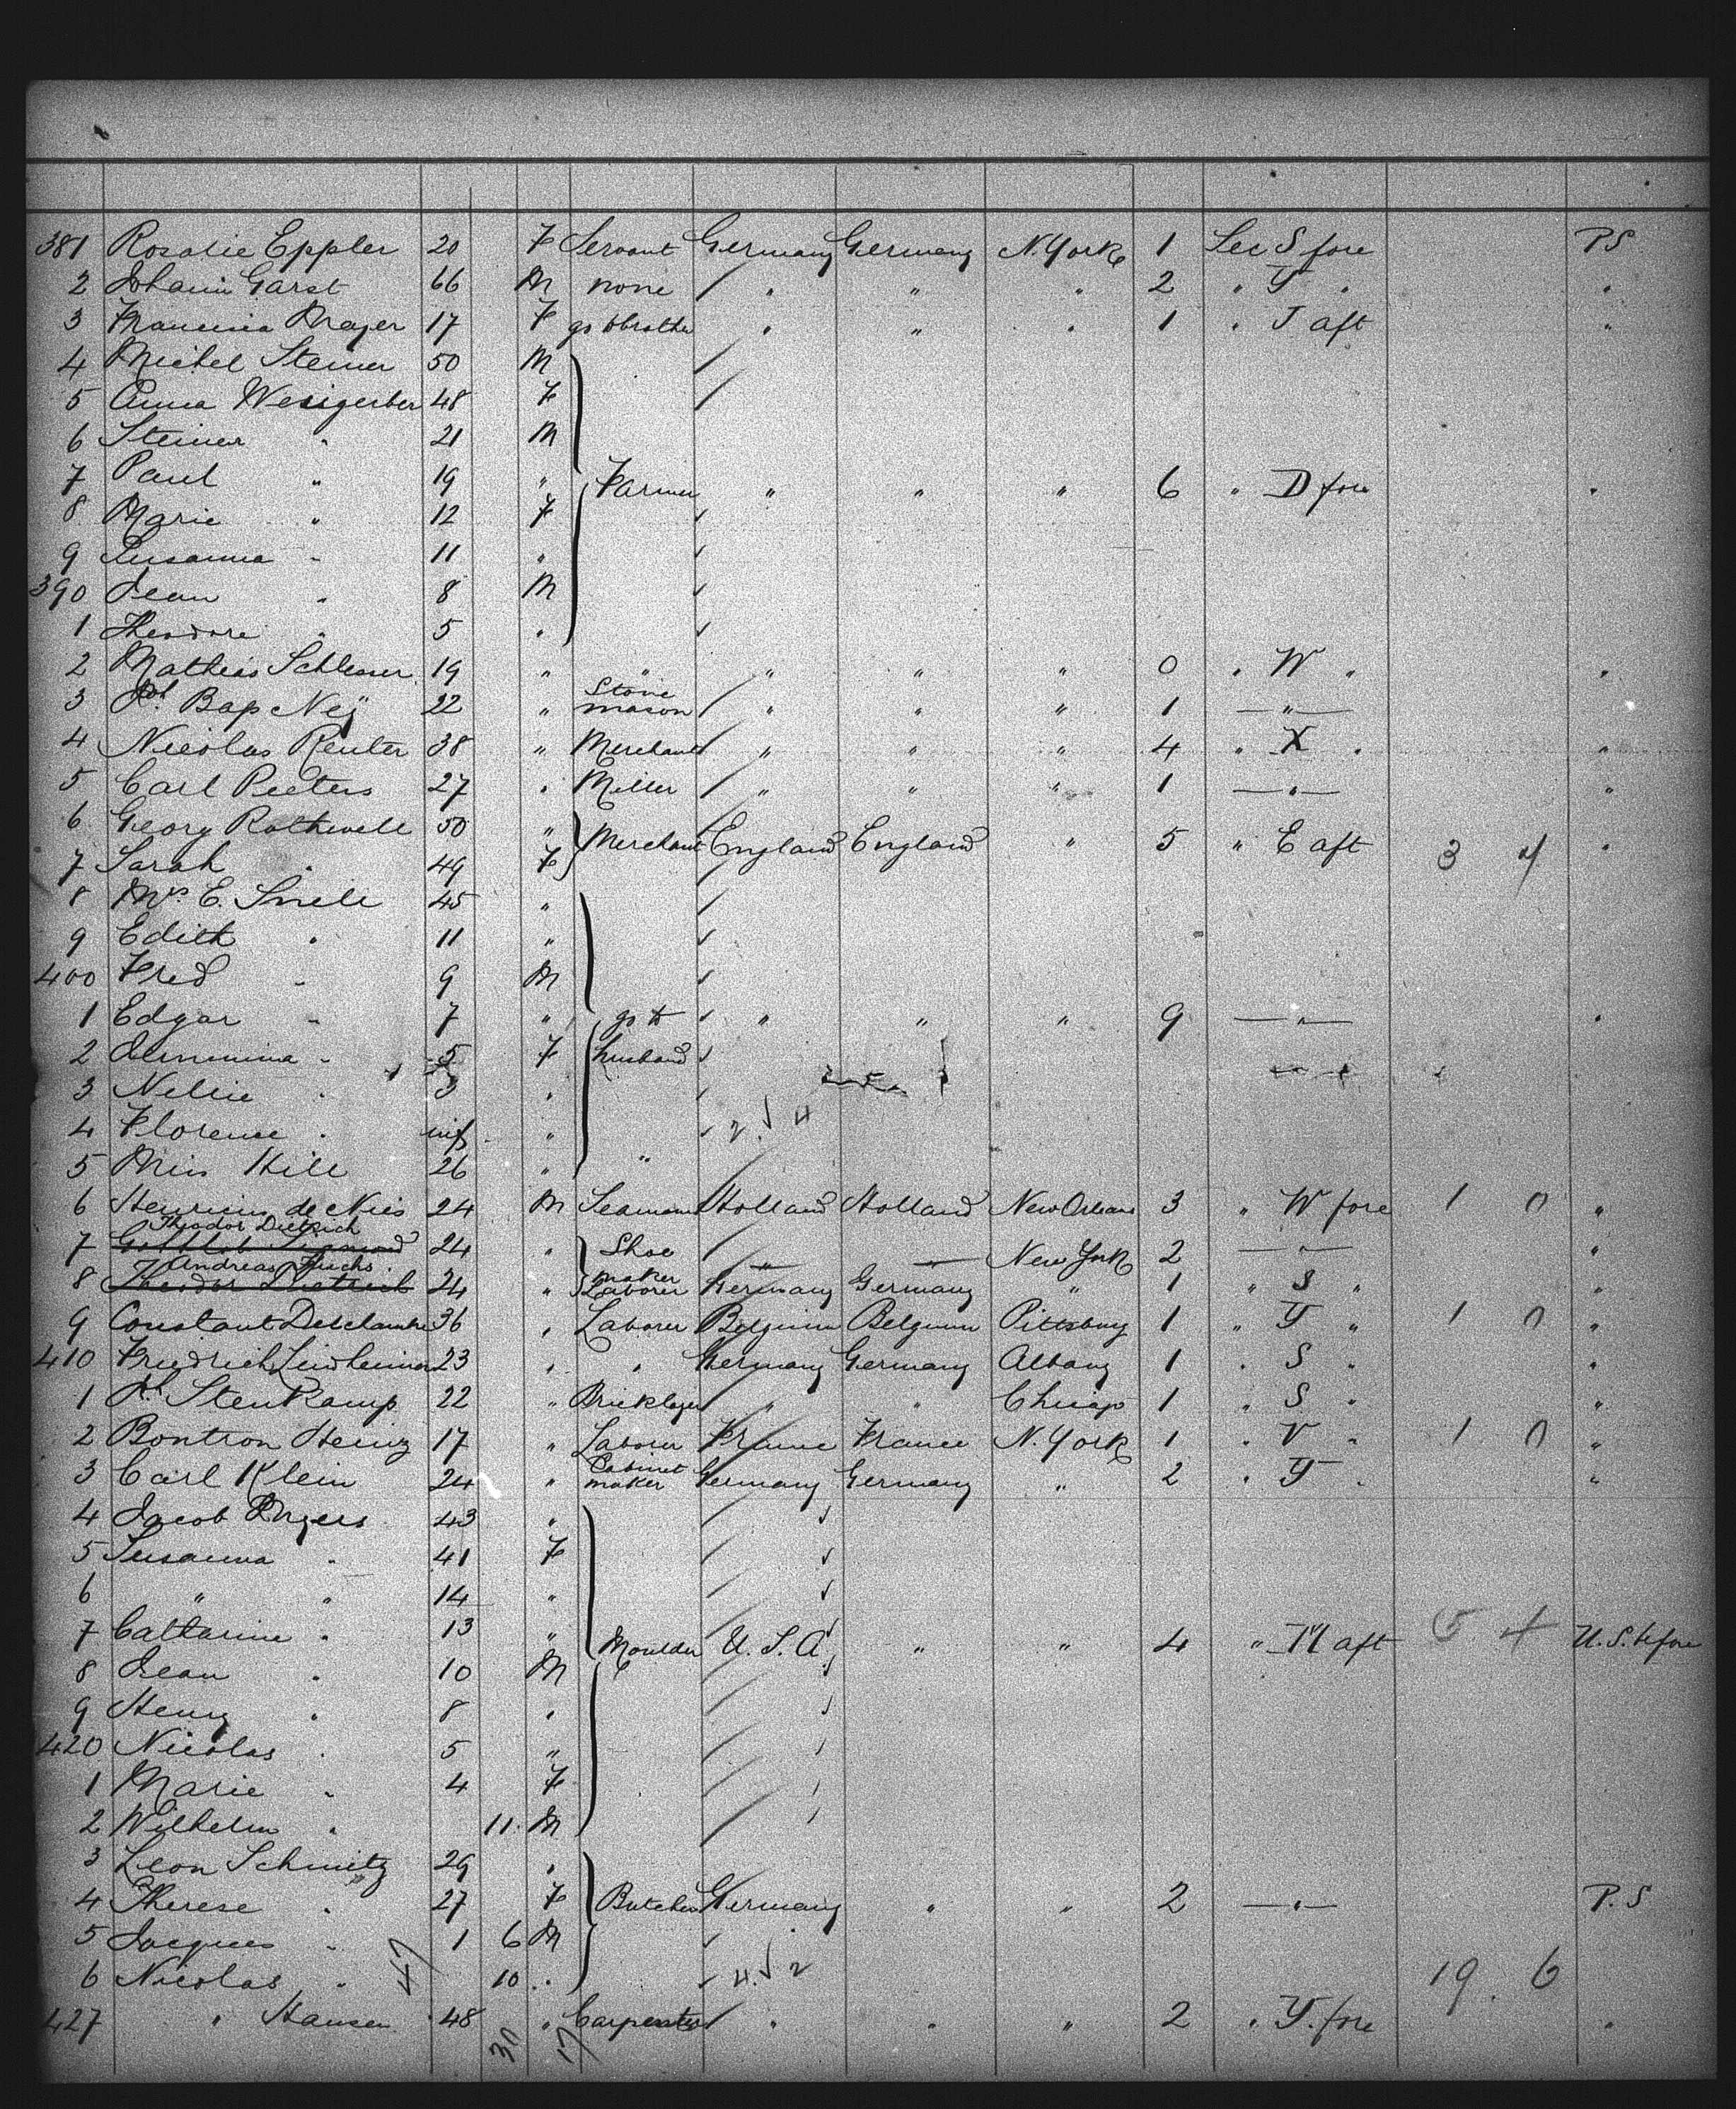 381 Rosalie Eppler 20 F Servant Germany Germany N. York 1 Sec S fore P S
2 Johann Garst 66 M none " " " 2 " Y " "
3 Mayer 17 F go to brother " " " 1 " J aft "
4 Michel Steiner 50 M
5 Anna Wesigerber 48 F
6 Steiner " 21 M
7 Paul " 19 " Farmer " " " 6 " D fore "
8 Marie " 12 F
9 Susanna " 11 "
390 Jean " 8 M
1 Theodore " 5 "
2 Mathias Schlesser 19 " " " " " 0 " W " "
3 Bap Neÿ 22 " Stone mason " " " 1 — " —
4 Nicolas Reuter 38 " Merchant " " " 4 " X " "
5 Carl Peeters 27 " Miller " " " 1 — " — "
6 Georg Rothwell 50 "
7 Sarah " 49 F Merchant England England " 5 " E aft 3 4 "
8 Mrs. E. Snell 45 "
9 Edith " 11 "
400 Fred " 9 M
1 Edgar " 7 " go to " " " 9 — " — "
2 Jemmima " 5 F husband
3 Nellie " 3 "
4 Florence " inf " 2. 4
5 Miss Hill 26 " "
6 Henricus de Nies 24 M Seaman Holland Holland New Orleans 3 " W fore 1 0 "
Theodor Dietrich
7 24 " Shoe maker " " New York 2 — " — "
Andreas Fuchs
8 Theodor Dietrich 24 " Laborer Germany Germany " 1 " S " "
9 Constant 36 " Laborer Belgium Belgium Pittsburg 1 " Y " 1 0 "
410 Friedrich Lindheimer 23 " " Germany Germany Albany 1 " S " "
1 Stenkamp 22 " Bricklayer " " Chicago 1 " S " "
2 Bontron Henry 17 " Laborer France France N. York 1 " V " 1 0 "
3 Carl Klein 24 " Cabinet maker Germany Germany " 2 " Y " "
4 Jacob 43 "
5 Susanna " 41 F
6 " " 14 "
7 Catharine " 13 " Moulder U. S. A. " " 4 " M aft 5 4 U. S. before
8 Jean " 10 M
9 Henry " 8 "
420 Nicolas " 5 "
1 Marie " 4 F
2 Wilhelm " 11 M
3 Leon Schmitz 29 "
4 Therese " 27 F Butcher Germany " " 2 — " — P. S
5 Jacques " 1 6 M
6 Nicolas " 10 " 4. 2 19. 6
427 " Hansen 48 " Carpenter " " " 2 " Y. fore "
47 30 17